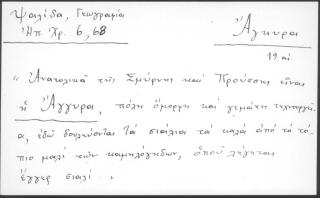 Ψαλίδα, Γεωγραφία
Ἠπ. Χρ. 6, 68
Ἄγκυρα
19 αἰ.
"Ἀνατολικά τῆς Σμύρνης καί Προύσσης εἶναι
ἡ Ἄγγυρα, πόλη ὄμορφη καί γεμάτη τεχνουργεῖ-
α, ἐδῶ δουλεύονται τά σιάλια τά καλά ἀπό τό τό-
πιο μαλί τῶν καμηλόγιδων, ὁπού λέγεται
ἔγγερ σιαλί."